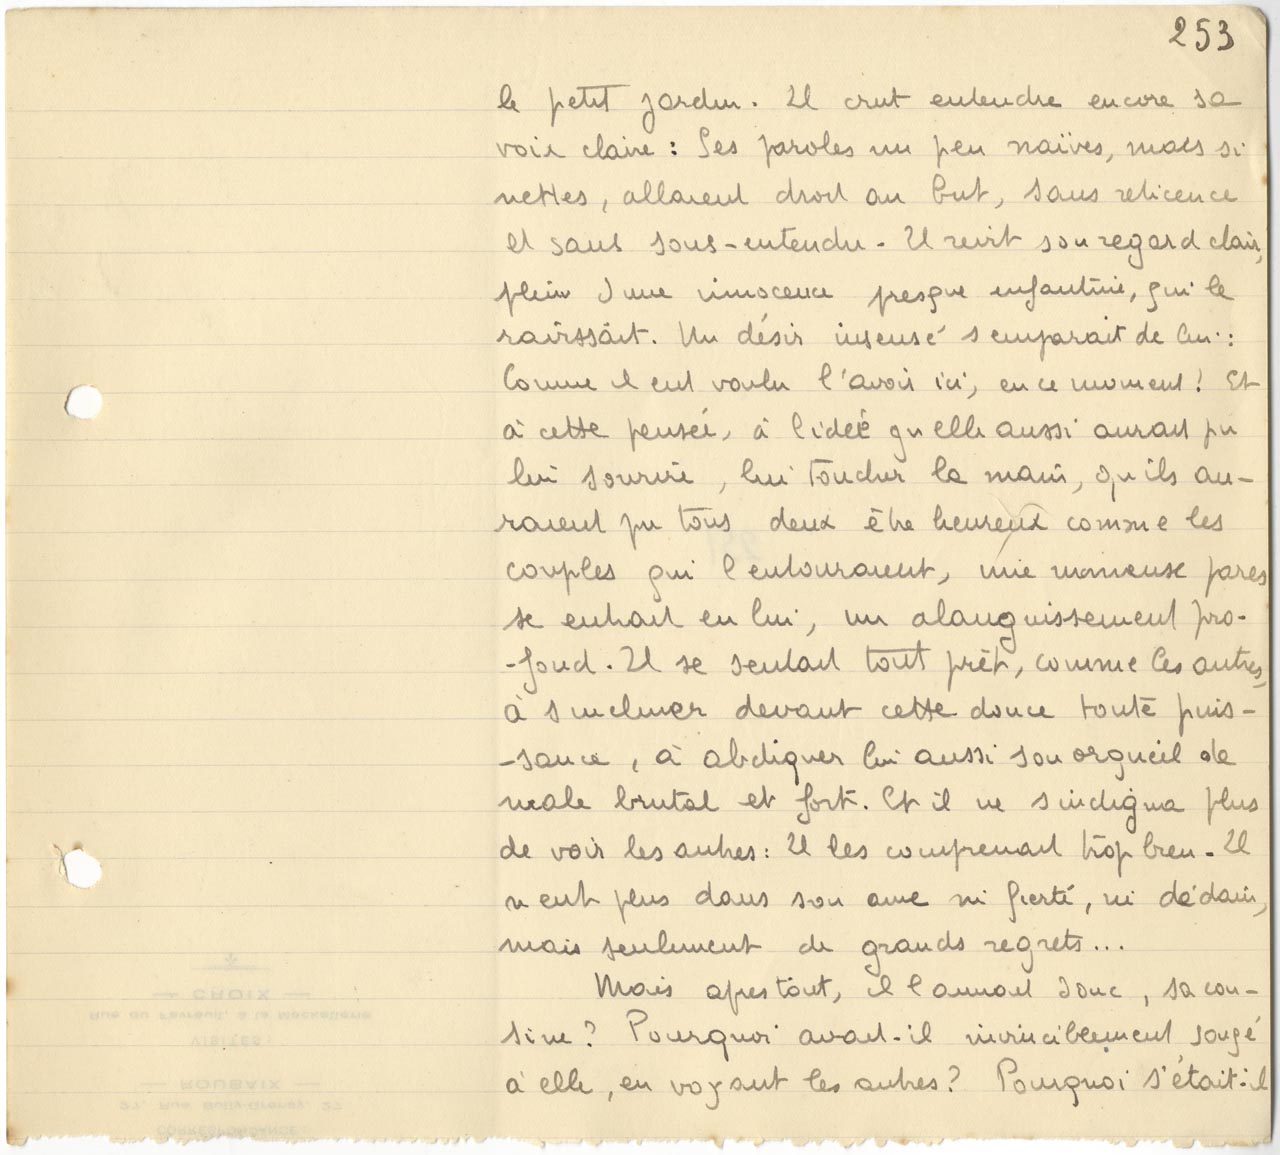 253
le petit jardin. Il crut entendre encore sa
voix claire : Ses paroles un peu naïves, mais si
nettes, allaient droit au but, sans reticence
et sans sous-entendu. Il revit son regard clair,
plein d'une innocence presque enfantine, qui le
ravissait. Un désir insensé s'emparait de lui :
Comme il eut voulu l'avoir ici, en ce moment ! Et
à cette pensée, à l'idée qu'elle aussi aurait pu
lui sourire, lui toucher la main, qu'ils au-
raient pu tous deux être heureux comme les
couples qui l'entouraient, une pares
se entrait en lui, un alanguissement pro-
-fond. Il se sentait tout prêt, comme les autres,
à s'incliner devant cette douce toute puis-
-sance, à abdiquer lui aussi son orgueil de
male brutal et fort. Et il ne s'indigna plus
de voir les autres : Il les comprenait trop bien. Il
n'eut plus dans son ame ni fierté, ni dédain,
mais seulement de grands regrets...
Mais apres tout, il l'aimait donc, sa cou-
sine ? Pourquoi avait-il invinciblement songé
à elle, en voyant les autres ? Pourquoi s'était-il
— CROIX —
Rue du Favreuil, à la Mackellerie
VISITES :
— ROUBAIX —
27, Rue Bully-Grenay, 27
CORRESPONDANCE :